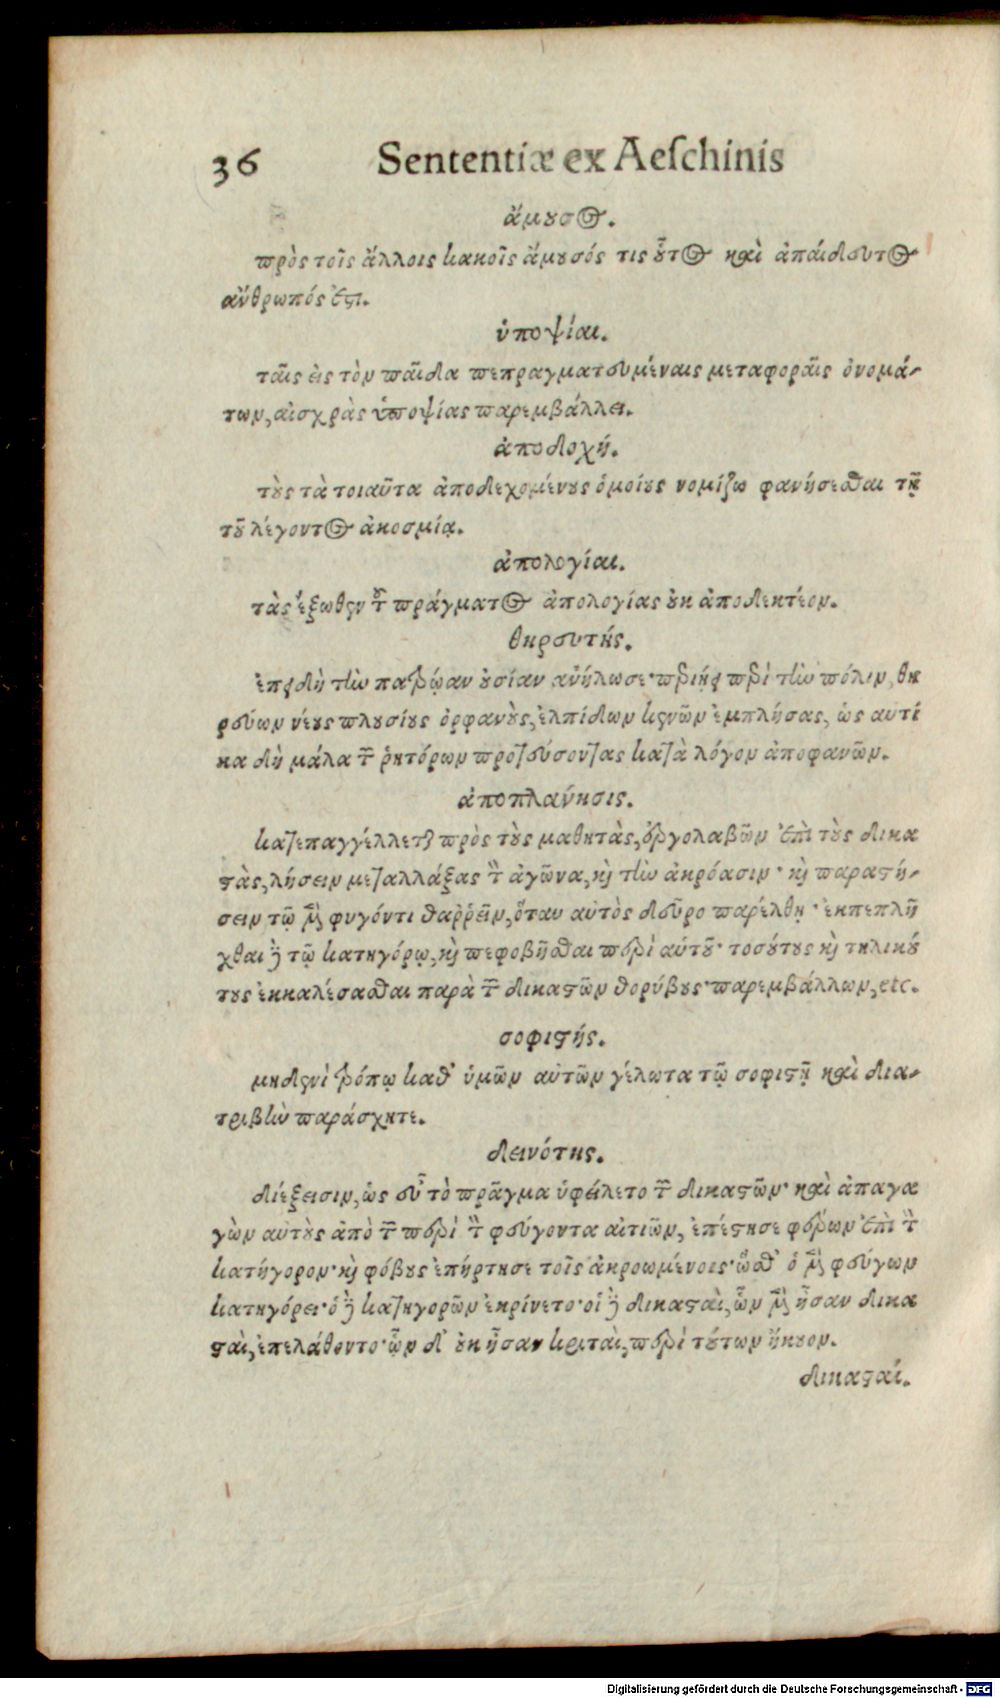 36 Sententiæ ex Aeſchinis
ἄμουσος.
πρὸς τοῖς ἄλλοις κακοῖς ἄμουσός τις οὗτος καὶ ἀπαίδευτος
ἄνθρωπός ἐστι.
ὑποψίαι.
ταῖς εἰς τὸν παῖδα πεπραγματευμέναις μεταφοραῖς ὀνομά-
των, αἰσχρὰς ὑποψίας παρεμβάλλει.
ἀποδοχή.
τοὺς τὰ τοιαῦτα ἀποδεχομένους ὁμοίους νομίζω φανήσεσθαι τῇ
τοῦ λέγοντος ἀκοσμίᾳ.
ἀπολογίαι.
τὰς ἔξωθεν τοῦ πράγματος ἀπολογίας οὐκ ἀποδεκτέον.
θηρευτής.
ἐπειδὴ τὴν πατρῴαν οὐσίαν ἀνήλωσε· περιῄει περὶ τὴν πόλιν, θη
ρεύων νέους πλουσίους ὀρφανοὺς, ἐλπίδων κενῶν ἐμπλήσας, ὡς αὐτί
κα δὴ μάλα τῶν ῥητόρων πρωτεύσοντας κατὰ λόγον ἀποφανῶν.
ἀποπλάνησις.
κατεπαγγέλλεται πρὸς τοὺς μαθητὰς, ἐργολαβῶν ἐπὶ τοὺς δικα
στὰς, λήσειν μεταλλάξας τὸν ἀγῶνα, καὶ τὴν ἀκρόασιν· καὶ παραστή-
σειν τῷ μὲν φυγόντι θαῤῥεῖν, ὅταν αὐτὸς δεῦρο παρέλθῃ· ἐκπεπλῆ
χθαι δὲ τῷ κατηγόρῳ, καὶ πεφοβῆσθαι περὶ αὑτοῦ· τοσούτους καὶ τηλικού
τους ἐκκαλέσασθαι παρὰ τῶν δικαστῶν θορύβους· παρεμβάλλων, etc.
σοφιστής.
μηδενὶ τρόπῳ καθ' ὑμῶν αὐτῶν γέλωτα τῷ σοφιστῇ καὶ δια-
τριβὴν παράσχητε.
δεινότης.
διέξεισιν, ὡς εὖ τὸ πρᾶγμα ὑφείλετο τῶν δικαστῶν· καὶ ἀπαγα
γὼν αὐτοὺς ἀπὸ τῶν περὶ τὸν φεύγοντα αἰτιῶν, ἐπέστησε φέρων ἐπὶ τὸν
κατήγορον· καὶ φόβους ἐπήρτησε τοῖς ἀκροωμένοις· ὥσθ' ὁ μὲν φεύγων
κατηγόρει· ὁ δὲ κατηγορῶν ἐκρίνετο· οἱ δὲ δικασταὶ, ὧν μὲν ἦσαν δικα
σταὶ, ἐπελάθοντο· ὧν δ' οὐκ ἦσαν κριταὶ, περὶ τούτων ἤκουον.
δικασταί.
Digitalisierung gefördert durch die Deutsche Forschungsgemeinschaft - DFG